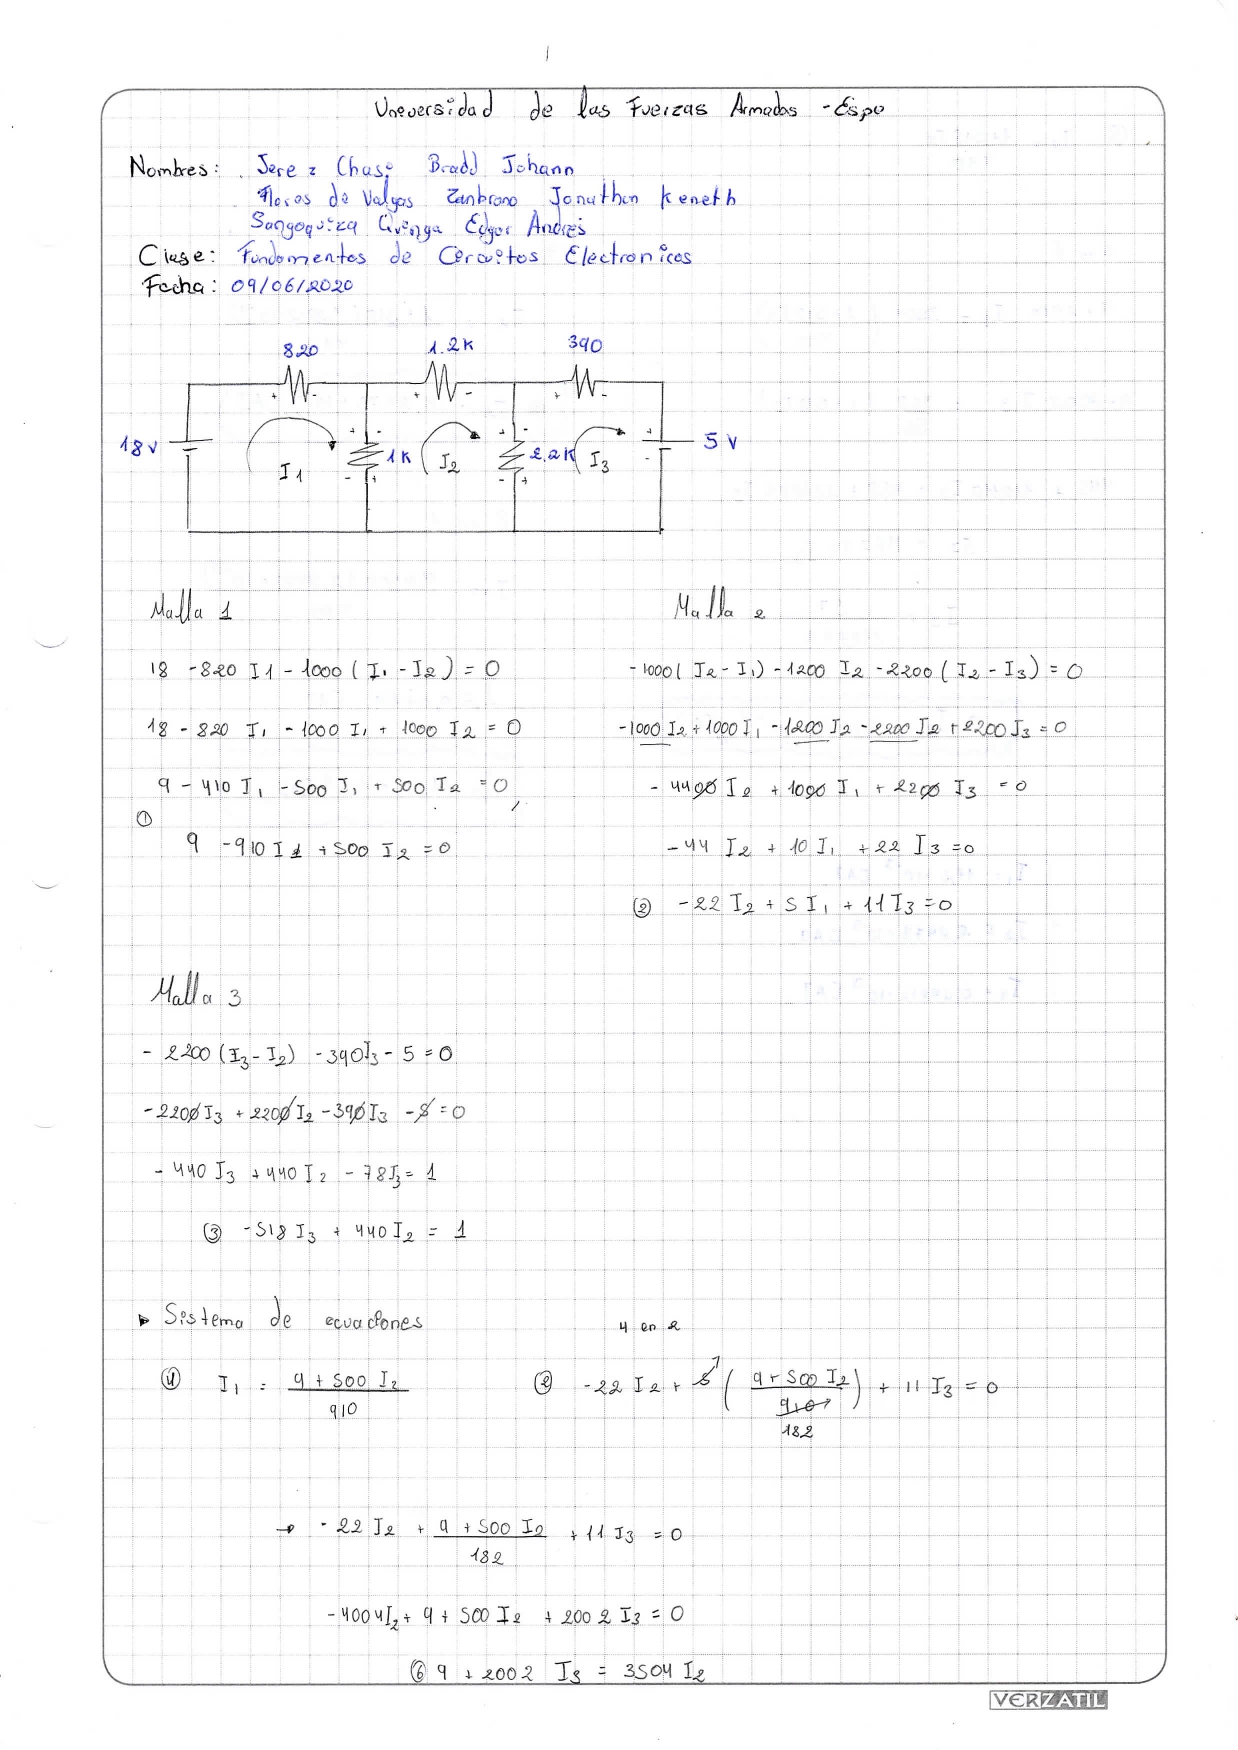 Universidad de las Fuerzas Armadas - Espe
Nombres: Jerez Chasi Bradd Johann
Flores de Valgas Zanbrano Jonathon Keneth
Sangoquiza Quinga Edgar Andrés
Clase: Fundamentos de Circuitos Electronicos
Fecha: 09/06/2020
820 1.2K 390
+ - + - + -
18v I1 + - 1K I2 + - 2.2K I3 + 5 V
- + - + -
Malla 1
18 - 820 I1 - 1000 (I1 - I2) = 0
18 - 820 I1 - 1000 I1 + 1000 I2 = 0
9 - 410 I1 - 500 I1 + 500 I2 = 0
① 9 - 910 I1 + 500 I2 = 0
Malla 2
-1000 (I2 - I1) - 1200 I2 - 2200 (I2 - I3) = 0
-1000 I2 + 1000 I1 - 1200 I2 - 2200 I2 + 2200 I3 = 0
- 4400 I2 + 1000 I1 + 2200 I3 = 0
-44 I2 + 10 I1 + 22 I3 = 0
② -22 I2 + 5 I1 + 11 I3 = 0
Malla 3
- 2200 (I3 - I2) - 390 I3 - 5 = 0
-2200 I3 + 2200 I2 - 390 I3 - 5 = 0
- 440 I3 + 440 I2 - 78 I3 = 1
③ -518 I3 + 440 I2 = 1
▸ Sistema de ecuaciones
④ I1 = 9 + 500 I2 / 910
4 en 2
② -22 I2 + 5 (9 + 500 I2 / 910) + 11 I3 = 0
182
→ -22 I2 + 9 + 500 I2 / 182 + 11 I3 = 0
-4004 I2 + 9 + 500 I2 + 2002 I3 = 0
⑥ 9 + 2002 I3 = 3504 I2
VERZATIL